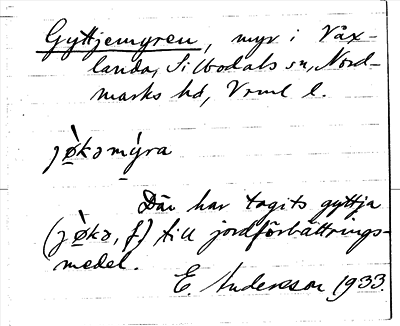 Gyttjemyren, myr i Våx-
landa, Silbodals sn, Nord-
marks hd, Vrml l.
jø̀kəmýra
Där har tagits gyttja
(jø̀kə, f) till jordförbättrings-
medel.
E. Andersson 1933.